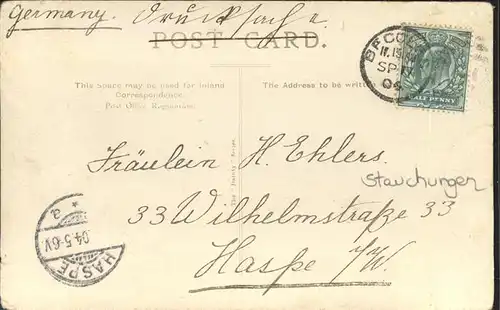 Germany. Drucksache.
POST CARD.
This Space may be used for Inland
Correspondence.
Post Office Regulations.
The Address to be writ
HALF PENNY
SP
04
Fräulein H. Ehlers.
Stauchungen
33 Wilhelmstraße 33
Haspe i/W.
HASPE
04.5-6V
* a